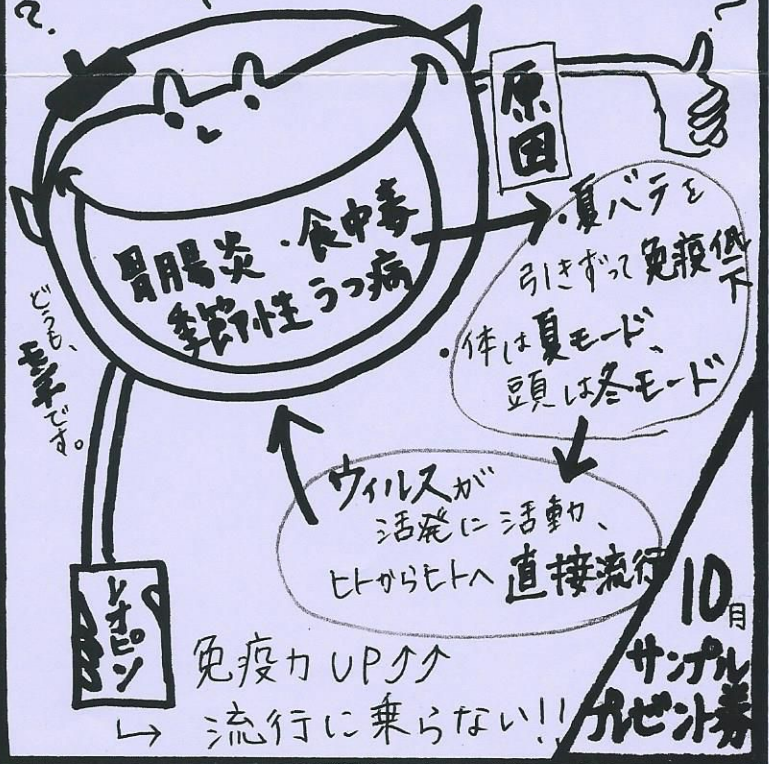 ?
?
原因
胃腸炎・食中毒
季節性うつ病
・夏バテを
引きずって免疫低下
・体は夏モード、
頭は冬モード
ウィルスが
活発に活動、
ヒトからヒトへ直接流行
どうも、
です。
レオピン
免疫力UP↑↑
↳流行に乗らない!!
10月
サンプル
プレゼント券